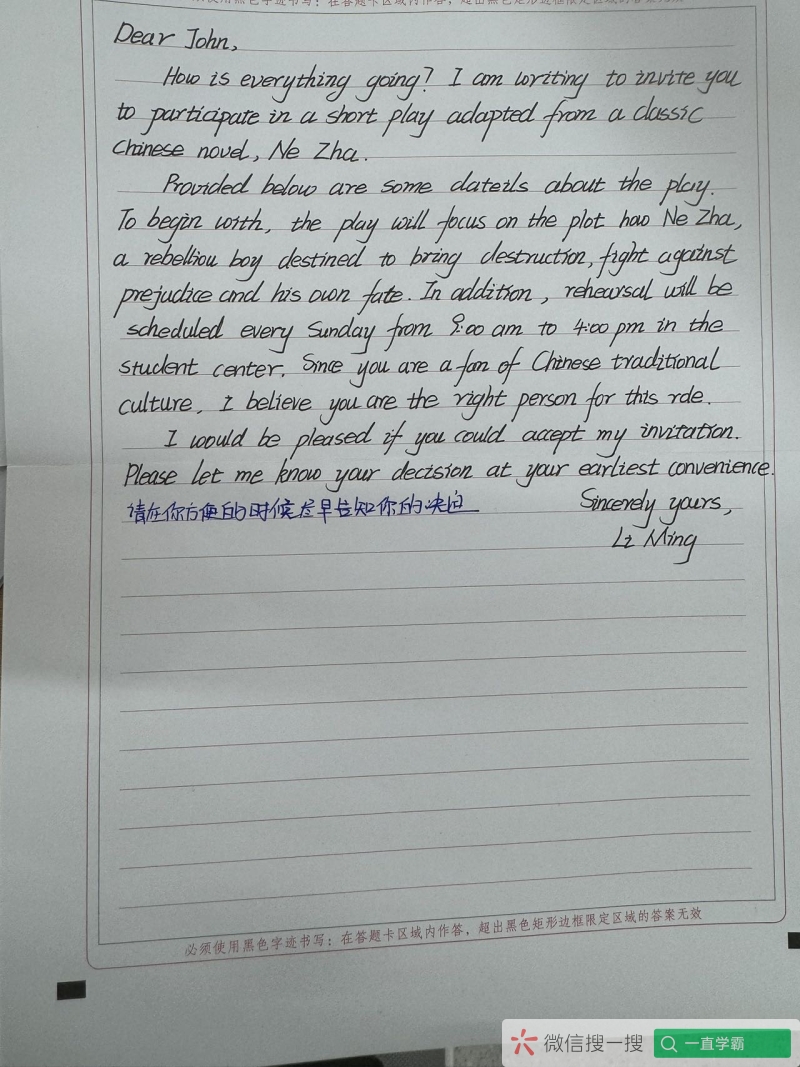 Dear John,
How is everything going? I am writing to invite you
to participate in a short play adapted from a classic
Chinese novel, Ne Zha.
Provided below are some dateils about the play.
To begin with, the play will focus on the plot how Ne Zha,
a rebelliou boy destined to bring destruction, fight against
prejudice and his own fate. In addition, rehearsal will be
scheduled every Sunday from 9:00 am to 4:00 pm in the
student center. Since you are a fan of Chinese traditional
culture, I believe you are the right person for this role.
I would be pleased if you could accept my invitation.
Please let me know your decision at your earliest convenience.
请在你方便的时候尽早告知你的决定
Sincerely yours,
Li Ming
必须使用黑色字迹书写；在答题卡区域内作答，超出黑色矩形边框限定区域的答案无效
微信搜一搜
一直学霸